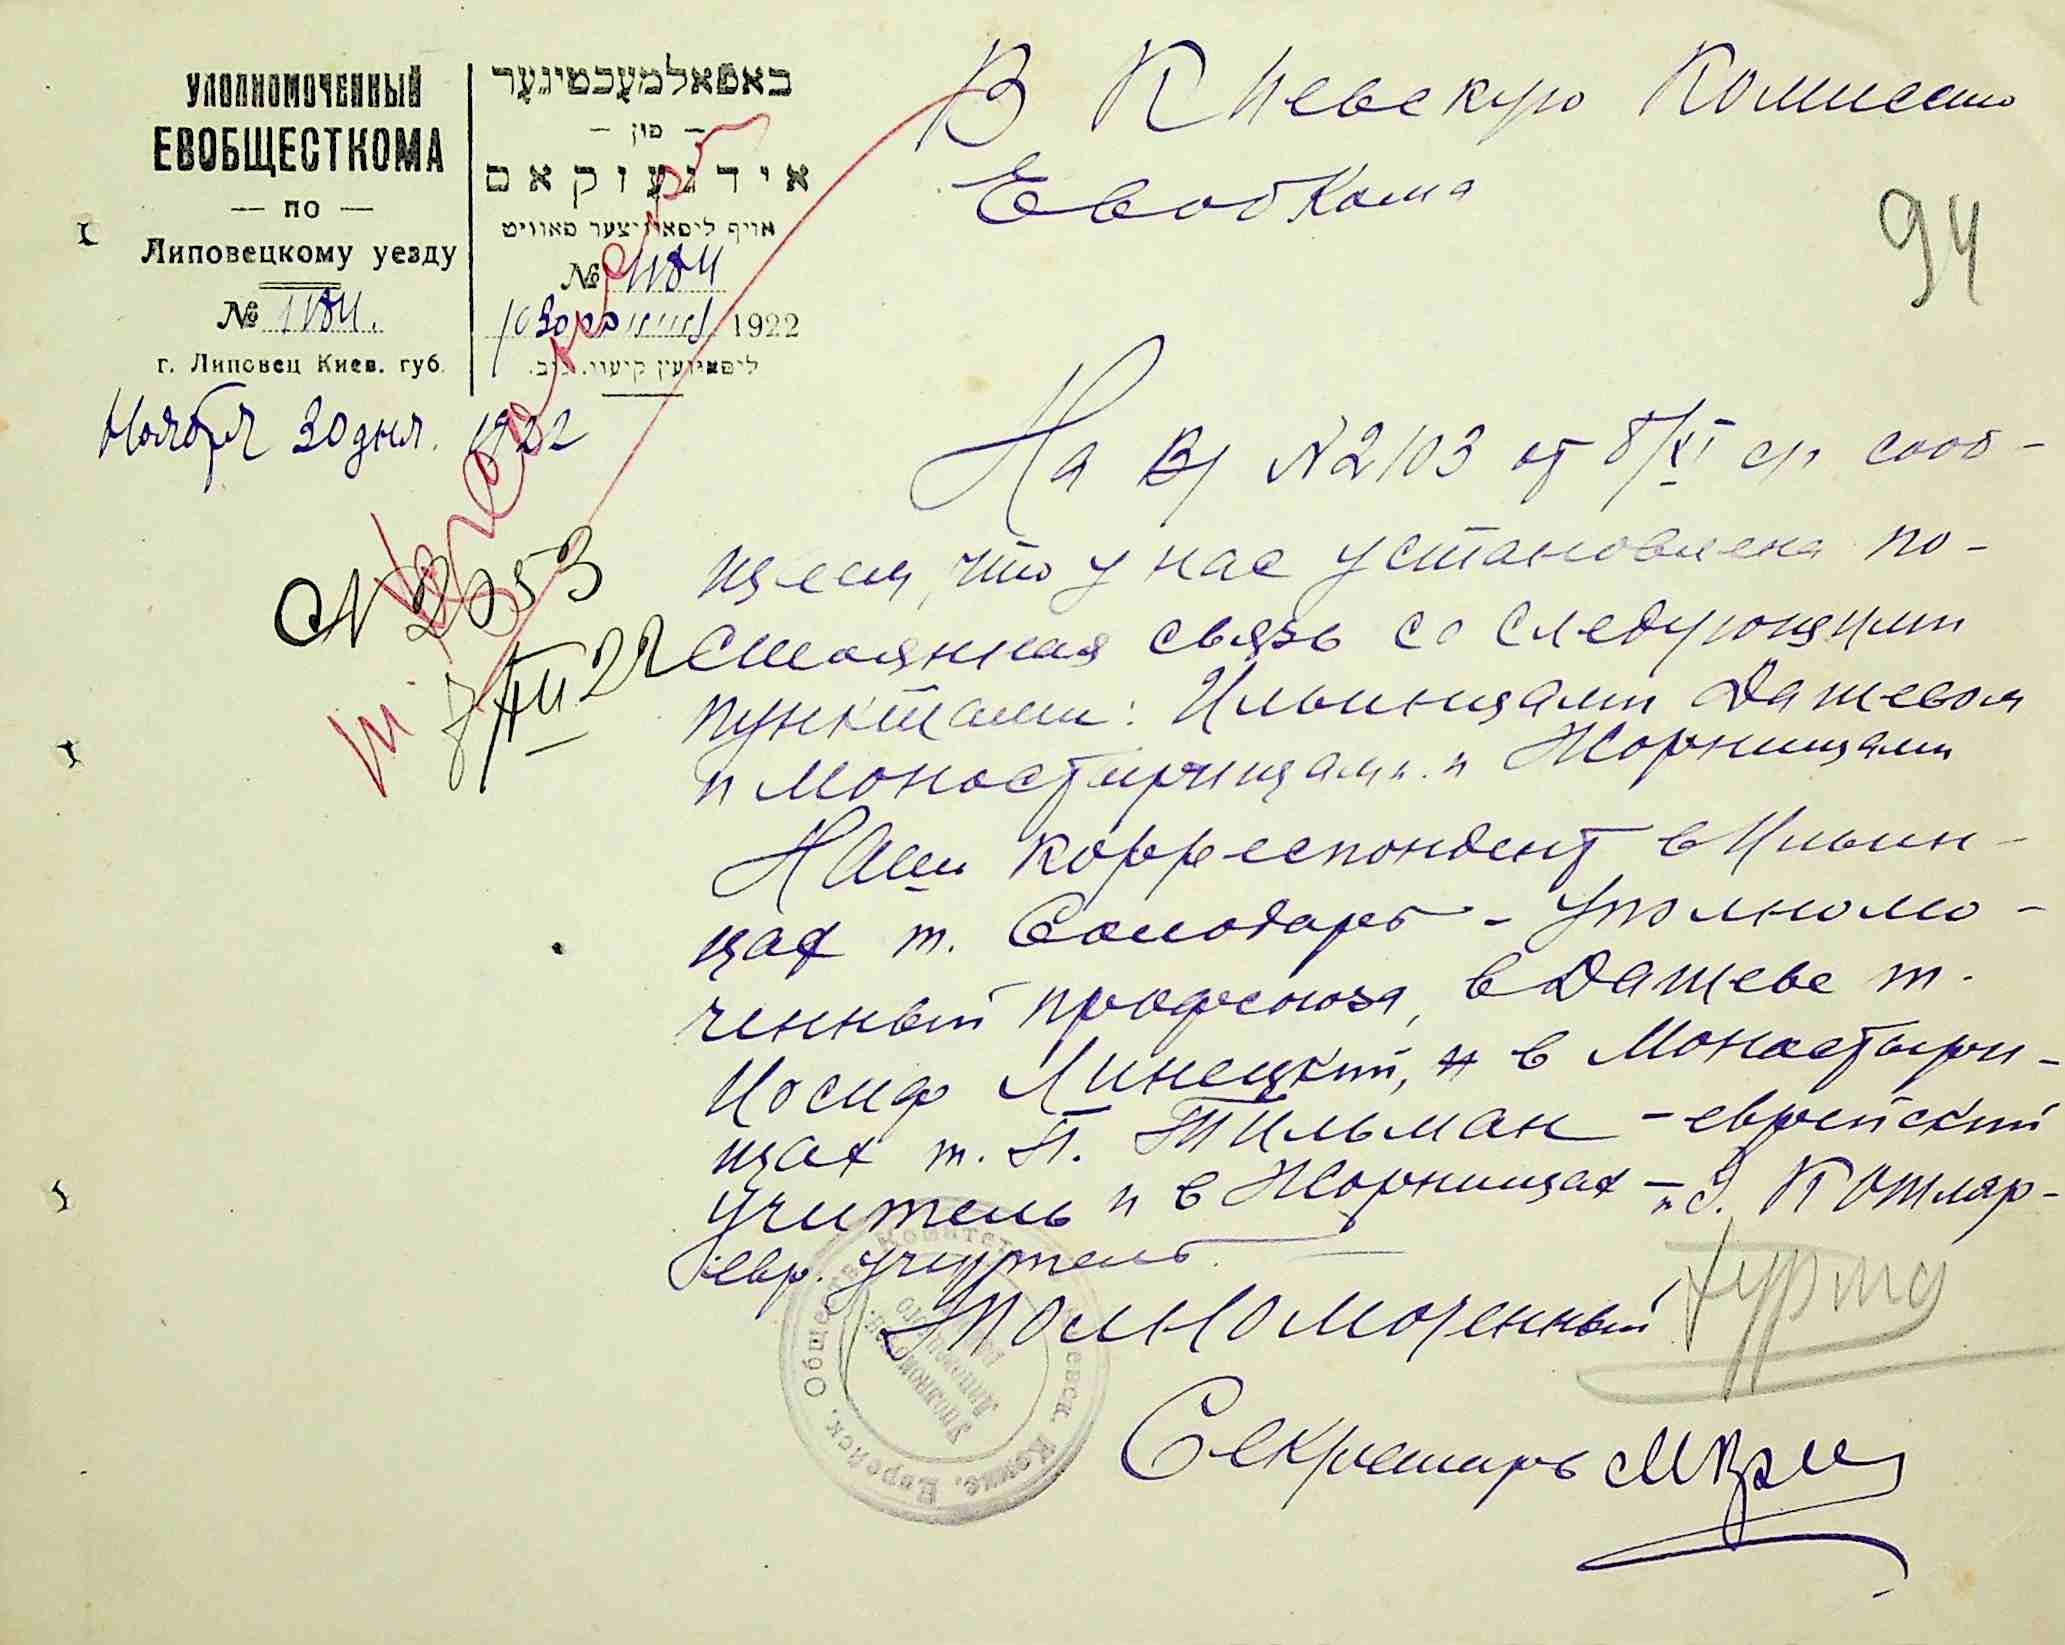 УПОЛНОМОЧЕННЫЙ
ЕВОБЩЕСТКОМА
— ПО —
Липовецкому уезду
№ 1184.
г. Липовец Киев. губ.
Ноября 30 дня. 1922
באפאלמעכטיגער
— פון —
אידגעזקאם
אויף ליפאוויצער פאוויט
№ 1184
1922
ליפאוועץ קיעוו. גוב.
№ 2653
7/XII 22
В Киевскую Комиссию
Евобкома
94
На В/ № 2103 от 8/XI с/г сооб-
щаем, что у нас установлена по-
стоянная связь со следующими
пунктами: Ильинцами Дашевом
и Монастырищами и Жорницами
Наш корреспондент в Ильин-
цах т. Солодарь - уполномо-
ченный профсоюза, в Дашеве т.
Иосиф Линецкий, в Монастыри-
щах т. П. Тильман - еврейский
учитель и в Жорницах - Котляр-
евр. учитель.
Уполномоченный
Секретарь
Киевск. Комис. Еврейск. Обществ. Комитет
Уполномочен.
Липовецкого